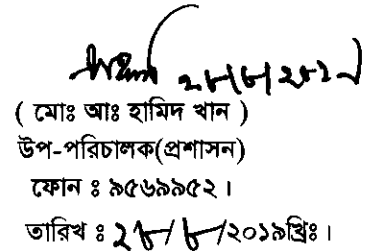 ২৮/৮/২০১৯
( মোঃ আঃ হামিদ খান )
উপ-পরিচালক(প্রশাসন)
ফোন ঃ ৯৫৬৯৯৫২।
তারিখ ঃ ২৮/৮/২০১৯খ্রিঃ।